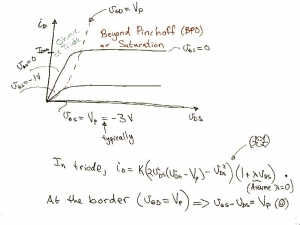 iD
vGD = VP
Beyond Pinchoff (BPO)
or Saturation
Ohmic
or Triode
IDSS
vGS = 0
vGD = 0
vGS = -1V
vDS
vGS = VP = -3V
typically
In triode, iD = K(2vDS(vGS - VP) - vDS²)(1 + λvDS)
(Assume λ=0)
At the border (vGD = VP) => vGS - vDS = VP